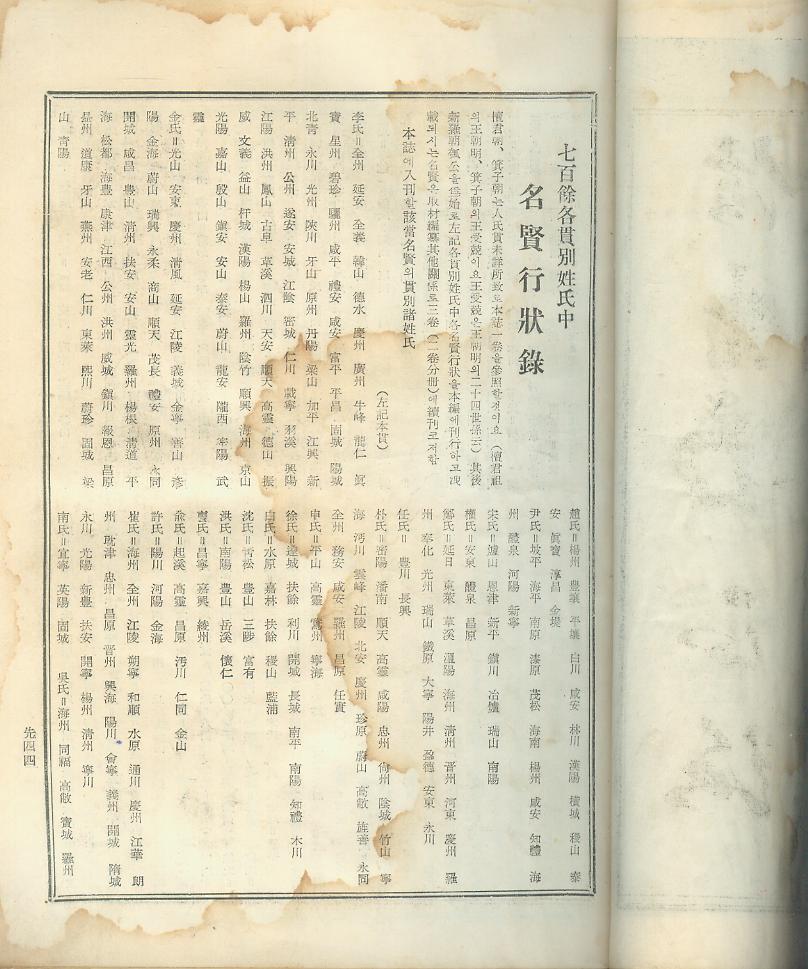 七百餘各貫別姓氏中
名賢行狀錄
檀君朝、箕子朝는人民貫未詳所致로本誌一卷을參照할것이요(檀君祖
의王朝明、箕子朝의王受兢이요王受兢은王朝明의二十四世孫云)其後
新羅朝 公을爲始로左記各貫別姓氏中各名賢行狀을本編에刊行하고
載되시는名賢은取材編纂其他關係로三卷(二卷分冊)에續刊코저함
本誌에入刊할該當名賢의貫別諸姓氏
(左記本貫)
李氏=全州 延安 全義 韓山 德水 慶州 廣州 牛峰 龍仁 眞
寶 星州 碧珍 驪州 咸平 禮安 咸安 富平 平昌 固城 陽城
北靑 永川 光州 陜川 牙山 原州 丹陽 梁山 加平 江興 新
平 淸州 公州 遂安 安城 江陰 密城 仁川 載寧 羽溪 興陽
江陽 洪州 鳳山 古阜 草溪 泗川 天安 順天 高靈 德山 振
威 文義 益山 杆城 漢陽 楊山 羅州 陰竹 順興 海州 京山
光陽 嘉山 殷山 鎭安 安山 泰安 蔚山 龍安 隴西 密陽 武
靈
金氏=光山 安東 慶州 淸風 延安 江陵 義城 金寧 善山 彦
陽 金海 蔚山 瑞興 永柔 商山 順天 茂長 禮安 原州 永同
開城 咸昌 豊山 淸州 扶安 安山 靈光 羅州 楊根 淸道 平
海 松都 海豊 康津 江西 公州 洪州 咸城 鎭川 報恩 昌原
晶州 道康 牙山 燕州 安老 仁川 東萊 熙川 蔚珍 固城 梁
山 靑陽
趙氏=楊州 豊壤 平壤 白川 咸安 林川 漢陽 橫城 稷山 泰
安 眞寶 淳昌 金堤
尹氏=坡平 海平 南原 漆原 茂松 海南 楊州 咸安 知禮 海
州 醴泉 河陽 新寧
宋氏=礪山 恩津 新平 鎭川 冶爐 瑞山 南陽
權氏=安東 醴泉 昌原
鄭氏=延日 東萊 草溪 溫陽 海州 淸州 晋州 河東 慶州 羅
州 奉化 光州 瑞山 鐵原 大寧 陽井 盈德 安東 永川
任氏= 豊川 長興
朴氏=密陽 潘南 順天 高靈 咸陽 忠州 尙州 陰城 竹山 寧
海 沔川 雲峰 江陵 北安 慶州 珍原 蔚山 高敞 旌善 永同
全州 務安 咸安 羅州 昌原 任實
申氏=平山 高靈 鵞州 寧海
徐氏=達城 扶餘 利川 開城 長城 南平 南陽 知禮 木川
白氏=水原 嘉林 扶餘 稷山 藍浦
沈氏=靑松 豊山 三陟 富有
洪氏=南陽 豊山 岳溪 懷仁
蔓氏=昌寧 嘉興 綾州
兪氏=起溪 高靈 昌原 沔川 仁同 金山
許氏=陽川 河陽 金海
崔氏=海州 全州 江陵 朔寧 和順 水原 通川 慶州 江華 朗
州 耽津 忠州 昌原 晋州 興海 陽川 會寧 義州 開城 隋城
永川 光陽 新豊 扶安 開寧 楊州 淸州 寧川
南氏=宜寧 英陽 固城 吳氏=海州 同福 高敞 寶城 羅州
先四四